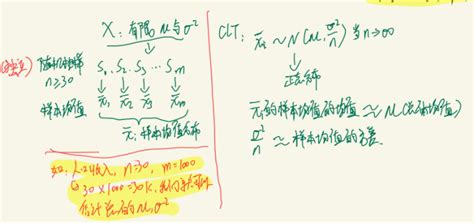 X：有限 μ 与 σ²
(独立) 随机抽样 n≥30
S₁ S₂ S₃ … Sm
样本均值
x̄₁ x̄₂ x̄₃ x̄m
x̄：样本均值分布
如：人口收入，n=30，m=1000
30×1000=30K，我们
估计总体的 μ，σ²
CLT：x̄ ~ N(μ, σ²/n) 当 n→∞
正态分布
x̄ 的样本均值的均值 ≈ μ (总体均值)
σ²/n ≈ 样本均值的方差